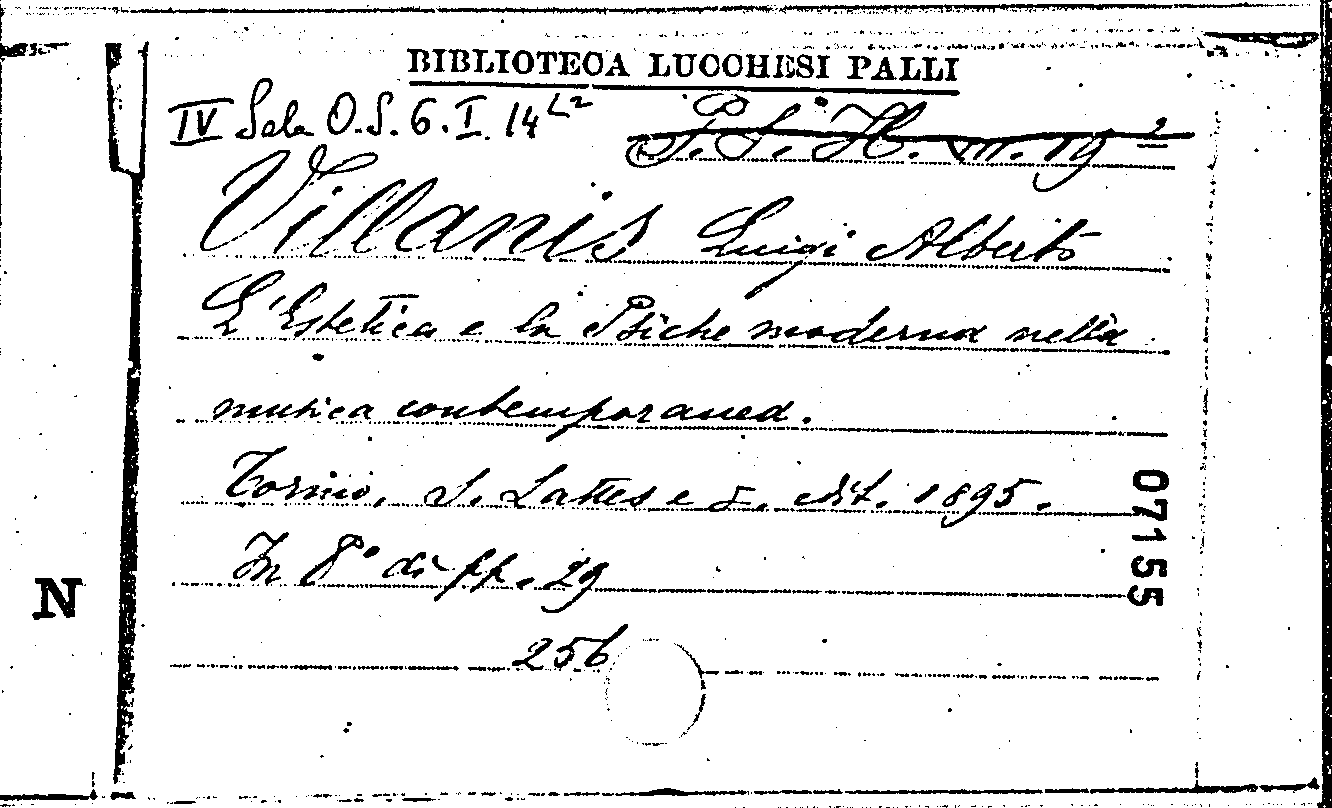 BIBLIOTECA LUCCHESI PALLI
IV Sala O.S. 6. I. 14 L2
Villanis Luigi Alberto
L'Estetica e la Psiche moderna nella
musica contemporanea.
Torino, S. Lattes e C. edit. 1895.
In 8° di pp. 29
256
07155
N